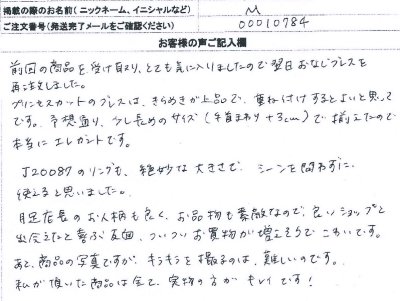 掲載の際のお名前(ニックネーム、イニシャルなど)
M
ご注文番号(発送完了メールをご確認ください)
00010784
お客様の声ご記入欄
前回の商品を受け取り、とても気に入りましたので翌日おなじブレスを
再注文しました。
プリンセスカットのブレスは、きらめきが上品で、重ね付けするとよいと思って
です。予想通り、少し長めのサイズ(手首まわり+3cm)で揃えたので
本当にエレガントです。
J20087のリングも、絶妙な大きさで、シーンを問わずに
使えると思いました。
店長のお人柄も良く、お品物も素敵なので、良いショップと
出会えたと喜ぶ反面、ついついお買物が増えそうでこわいです。
あと、商品の写真ですが、キラキラを撮るのは、難しいのです。
私が頂いた商品は全て、実物の方がキレイです!